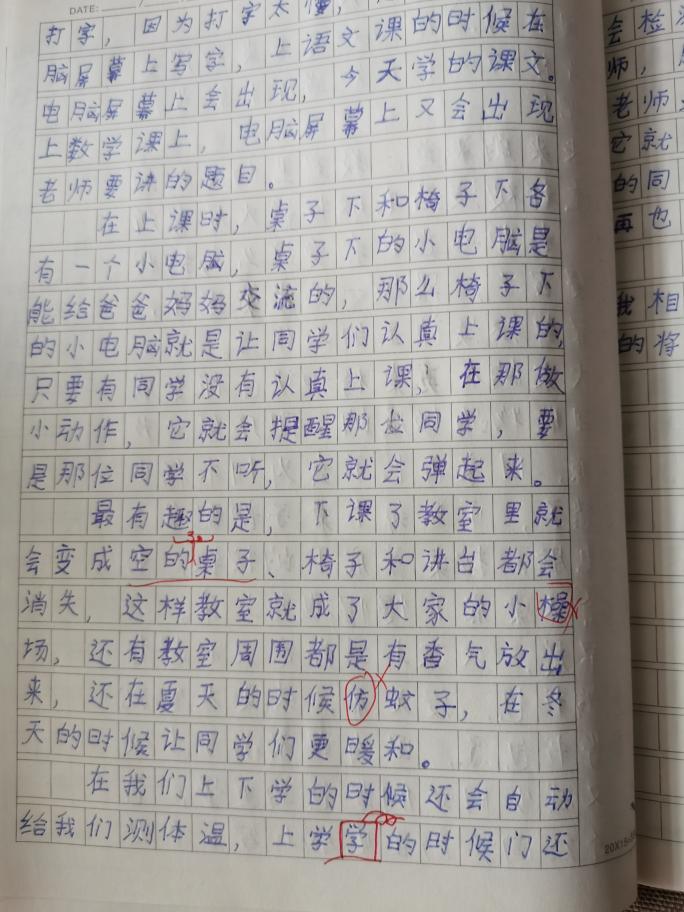 DATE:
打字，因为打字太慢，
上语文课的时候在
脑屏幕上写字，今天学的课文。
电脑屏幕上会出现，
上数学课上，电脑屏幕上又会出现
老师要讲的题目。
在上课时，桌子下和椅子下各
有一个小电脑，桌子下的小电脑是
能给爸爸妈妈交流的，那么椅子下
的小电脑就是让同学们认真上课的，
只要有同学没有认真上课，在那做
小动作，它就会提醒那位同学，要
是那位同学不听，它就会弹起来。
最有趣的是，下课了教室里就
会变成空的桌子、椅子和讲台都会
消失，这样教室就成了大家的小橾
场，还有教室周围都是有香气放出
来，还在夏天的时候仿蚊子，在冬
天的时候让同学们更暖和。
在我们上下学的时候还会自动
给我们测体温，上学学的时候门还
会检
师，
老师
它就
的同
再也
我相
的将